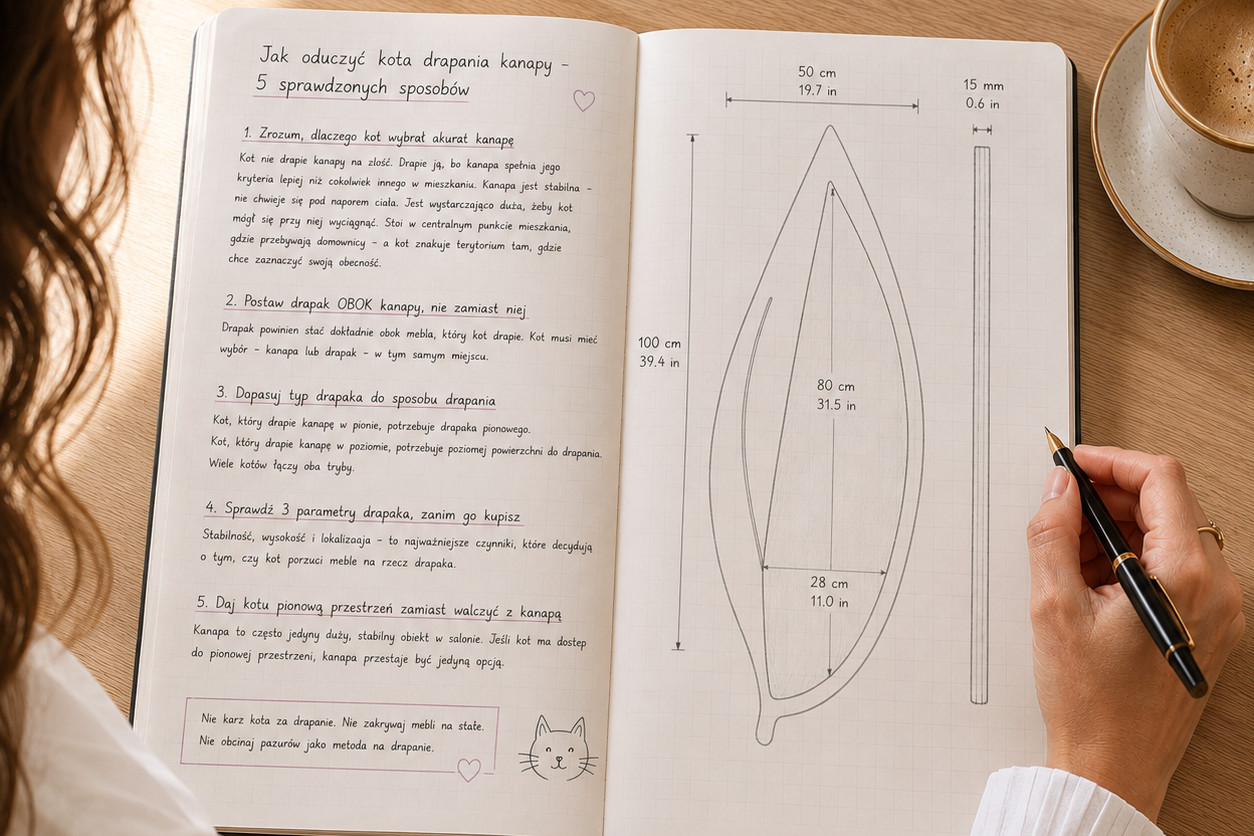 Jak oduczyć kota drapania kanapy –
5 sprawdzonych sposobów
1. Zrozum, dlaczego kot wybrał akurat kanapę
Kot nie drapie kanapy na złość. Drapie ją, bo kanapa spełnia jego
kryteria lepiej niż cokolwiek innego w mieszkaniu. Kanapa jest stabilna –
nie chwieje się pod naporem ciała. Jest wystarczająco duża, żeby kot
mógł się przy niej wyciągnąć. Stoi w centralnym punkcie mieszkania,
gdzie przebywają domownicy – a kot znakuje terytorium tam, gdzie
chce zaznaczyć swoją obecność.
2. Postaw drapak OBOK kanapy, nie zamiast niej
Drapak powinien stać dokładnie obok mebla, który kot drapie. Kot musi mieć
wybór – kanapa lub drapak – w tym samym miejscu.
3. Dopasuj typ drapaka do sposobu drapania
Kot, który drapie kanapę w pionie, potrzebuje drapaka pionowego.
Kot, który drapie kanapę w poziomie, potrzebuje poziomej powierzchni do drapania.
Wiele kotów łączy oba tryby.
4. Sprawdź 3 parametry drapaka, zanim go kupisz
Stabilność, wysokość i lokalizaaja – to najważniejsze czynniki, które decydują
o tym, czy kot porzuci meble na rzecz drapaka.
5. Daj kotu pionową przestrzeń zamiast walczyć z kanapą
Kanapa to często jedyny duży, stabilny obiekt w salonie. Jeśli kot ma dostep
do pionowej przestrzeni, kanapa przestaje być jedyną opcją.
Nie karz kota za drapanie. Nie zakrywaj mebli na stałe.
Nie obcinaj pazurów jako metoda na drapanie.
50 cm
19.7 in
15 mm
0.6 in
100 cm
39.4 in
80 cm
31.5 in
28 cm
11.0 in